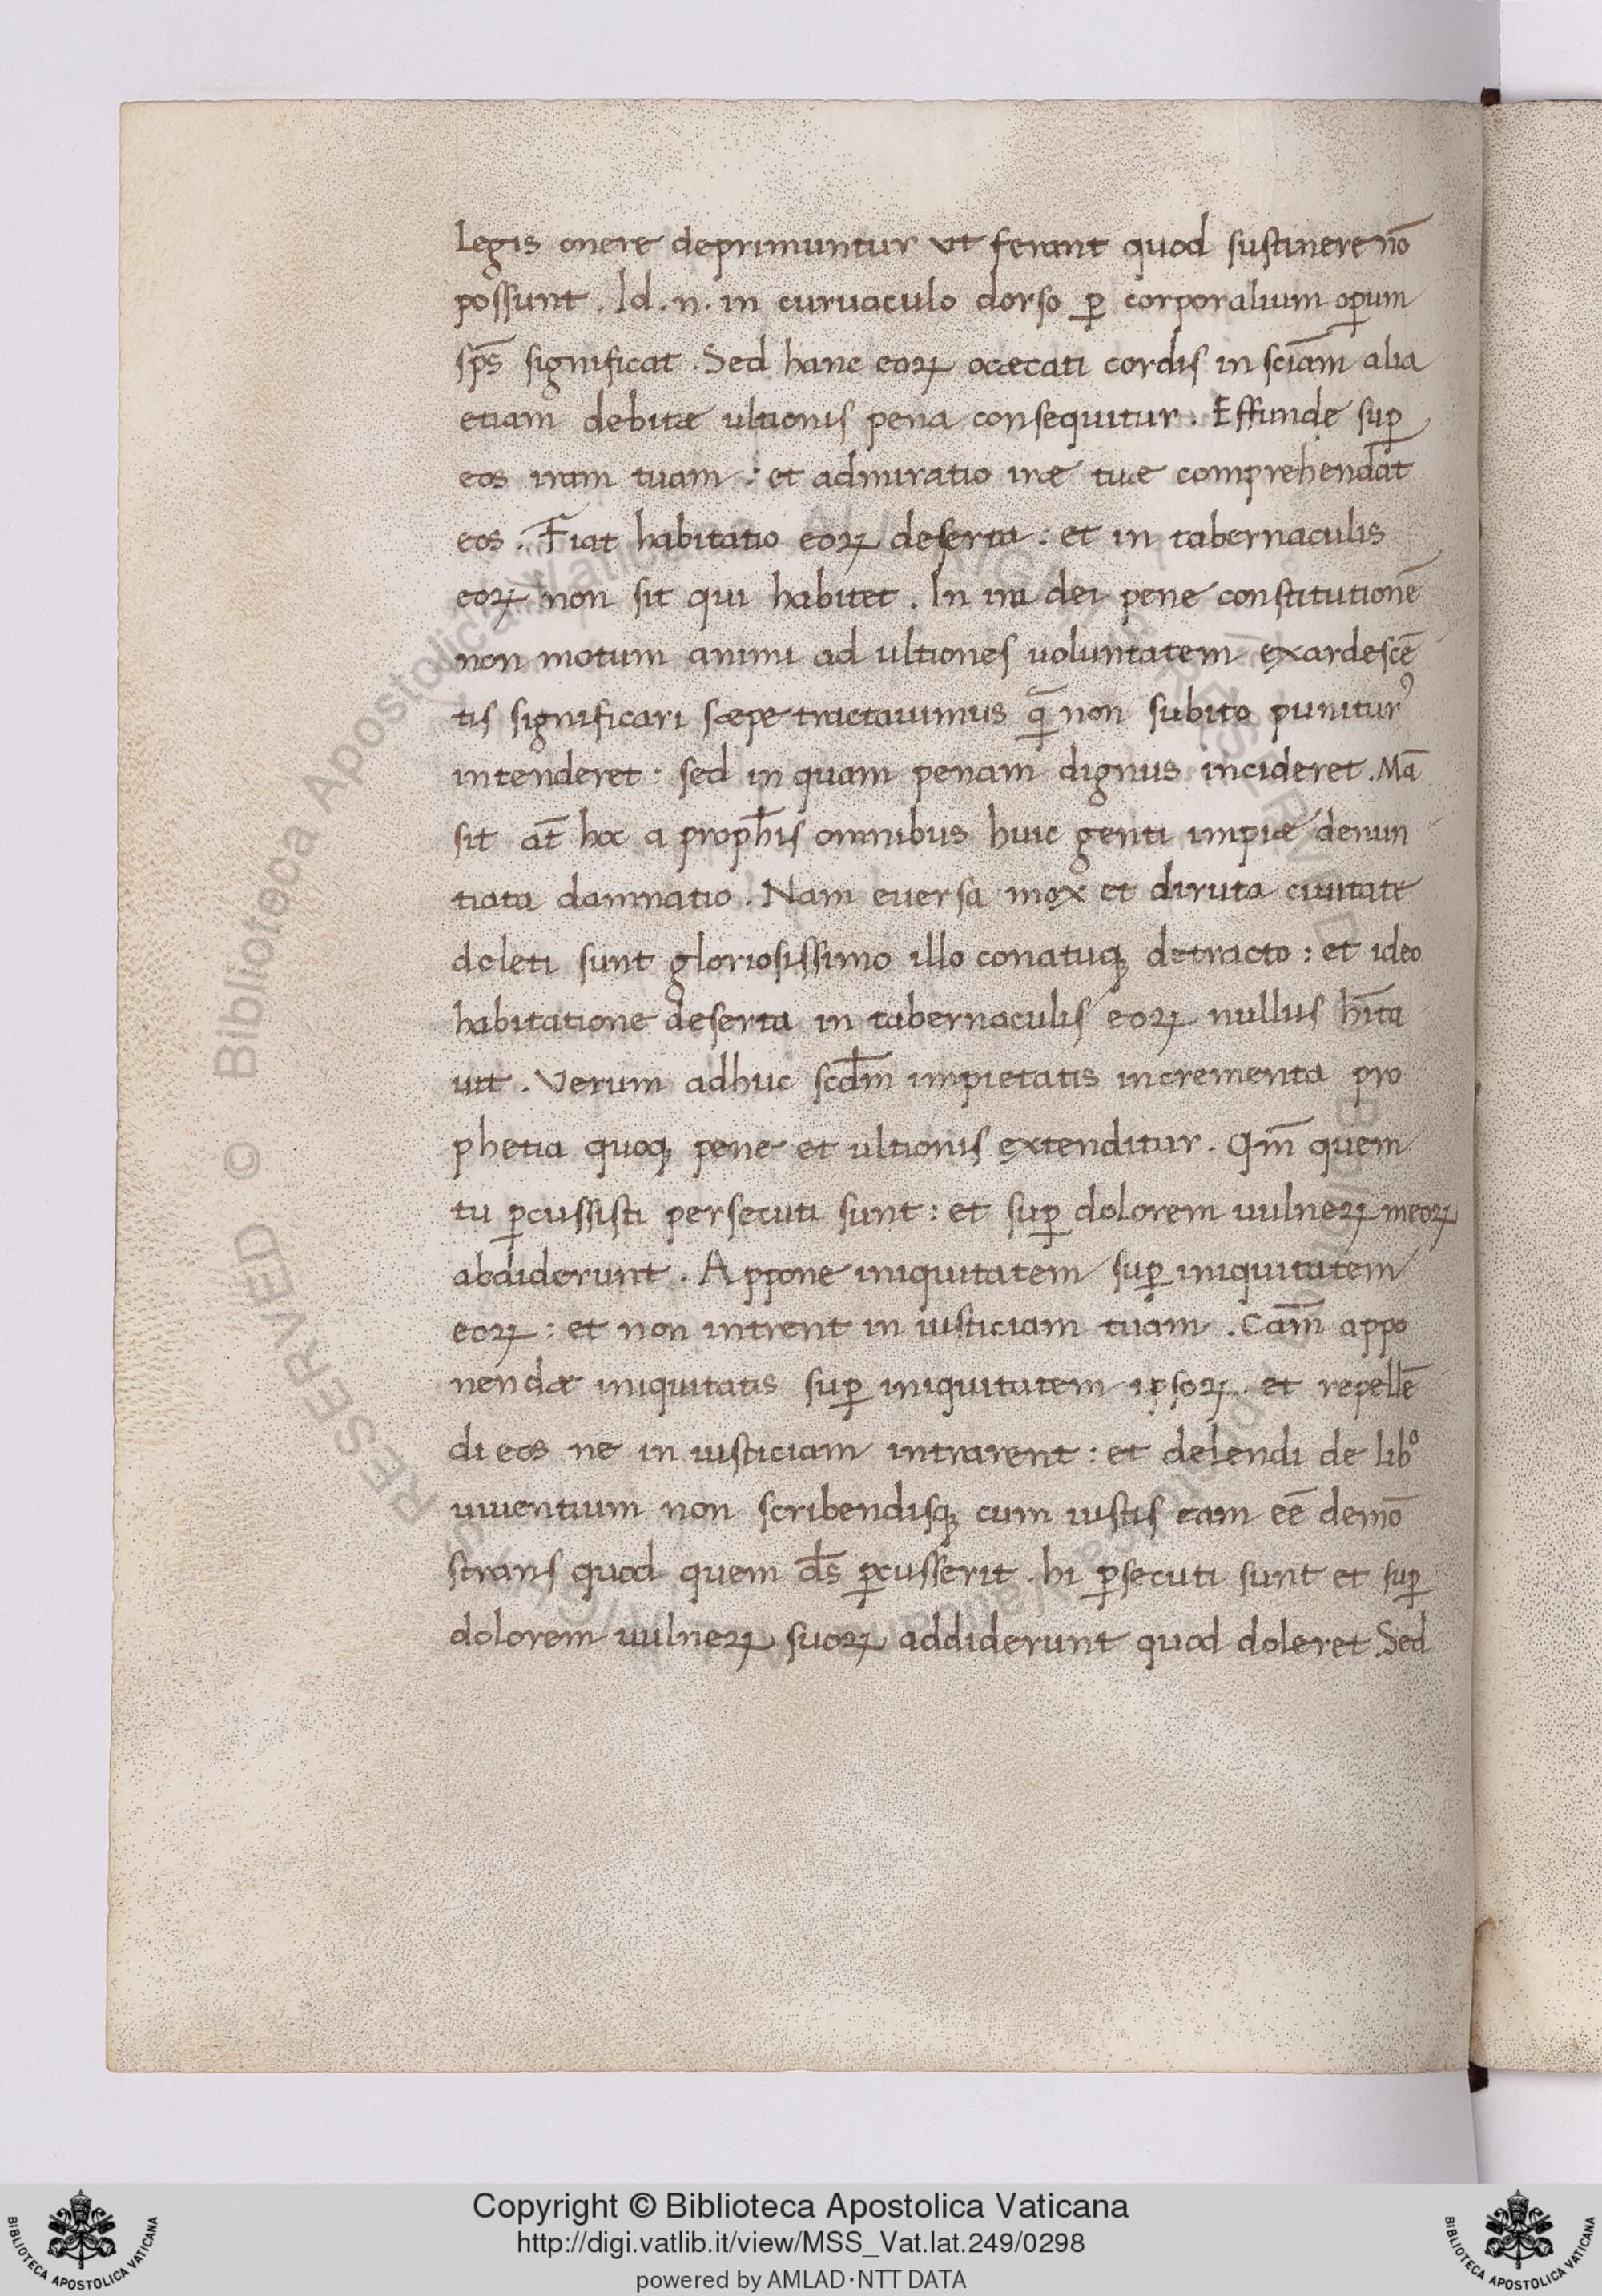 Legis onere deprimuntur vt ferant quod sustinere nō
possunt . Id . n . in curuaculo dorso ꝑ corporalium oꝑum
sp̄s significat . Sed hanc eoꝝ ocæcati cordis in sciām alia
etiam debitæ ultionis pena consequitur . Effunde suꝑ
eos iram tuam : et admiratio iræ tuæ comprehendat
eos . Fiat habitatio eoꝝ deserta : et in tabernaculis
eoꝝ non sit qui habitet . In ira dei pene constitutionē
non motum animi ad ultiones uoluntatem exardescē
tis significari sæpe tractauimus non subito puniturꝰ
intenderet : sed in quam penam dignus incideret . Mā
sit at̄ hoc a proph̄is omnibus huic genti impiæ denun
tiata damnatio . Nam euersa mox et diruta ciuitate
deleti sunt gloriosissimo illo conatuqꝫ detracto : et ideo
habitatione deserta in tabernaculis eoꝝ nullus hīta
uit . Verum adhuc scd̄m impietatis incrementa pro
phetia quoqꝫ pene et ultionis extenditur . Qm̄ quem
tu ꝑcussisti persecuti sunt : et suꝑ dolorem uulneꝝ meoꝝ
abdiderunt . Appone iniquitatem suꝑ iniquitatem
eoꝝ : et non intrent in iusticiam tuam . Cām̄ appo
nendæ iniquitatis suꝑ iniquitatem ipsoꝝ et repellē
di eos ne in iusticiam intrarent : et delendi de libº
uiuentium non scribendisqꝫ cum iustis eam eē demō
strans quod quem d̄s ꝑcusserit hi ꝑsecuti sunt et suꝑ
dolorem uulneꝝ suoꝝ addiderunt quod doleret . Sed
Copyright © Biblioteca Apostolica Vaticana
http://digi.vatlib.it/view/MSS_Vat.lat.249/0298
powered by AMLAD·NTT DATA
BIBLIOTECA APOSTOLICA VATICANA
BIBLIOTECA APOSTOLICA VATICANA